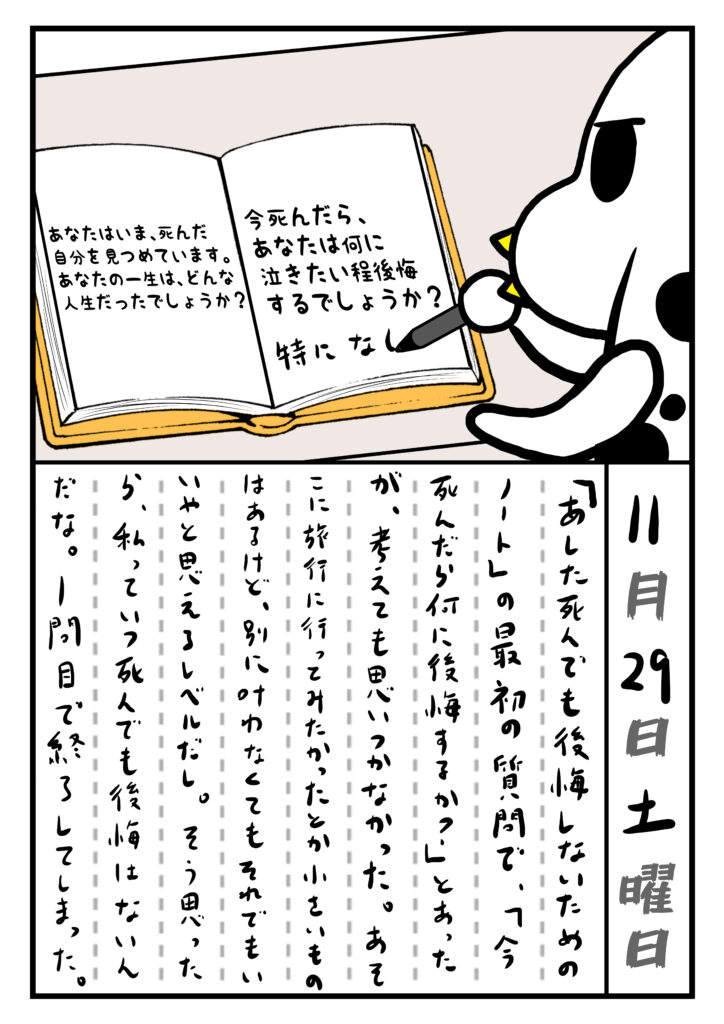 あなたはいま、死んだ
自分を見つめています。
あなたの一生は、どんな
人生だったでしょうか？
今死んだら、
あなたは何に
泣きたい程後悔
するでしょうか？
特になし
11月29日土曜日
「あした死んでも後悔しないための
ノート」の最初の質問で、「今
死んだら何に後悔するか？」とあった
が、考えても思いつかなかった。あそ
こに旅行に行ってみたかったとか小さいもの
はあるけど、別に叶わなくてもそれでもい
いやと思えるレベルだし。そう思った
ら、私っていつ死んでも後悔はないん
だな。1問目で終了してしまった。